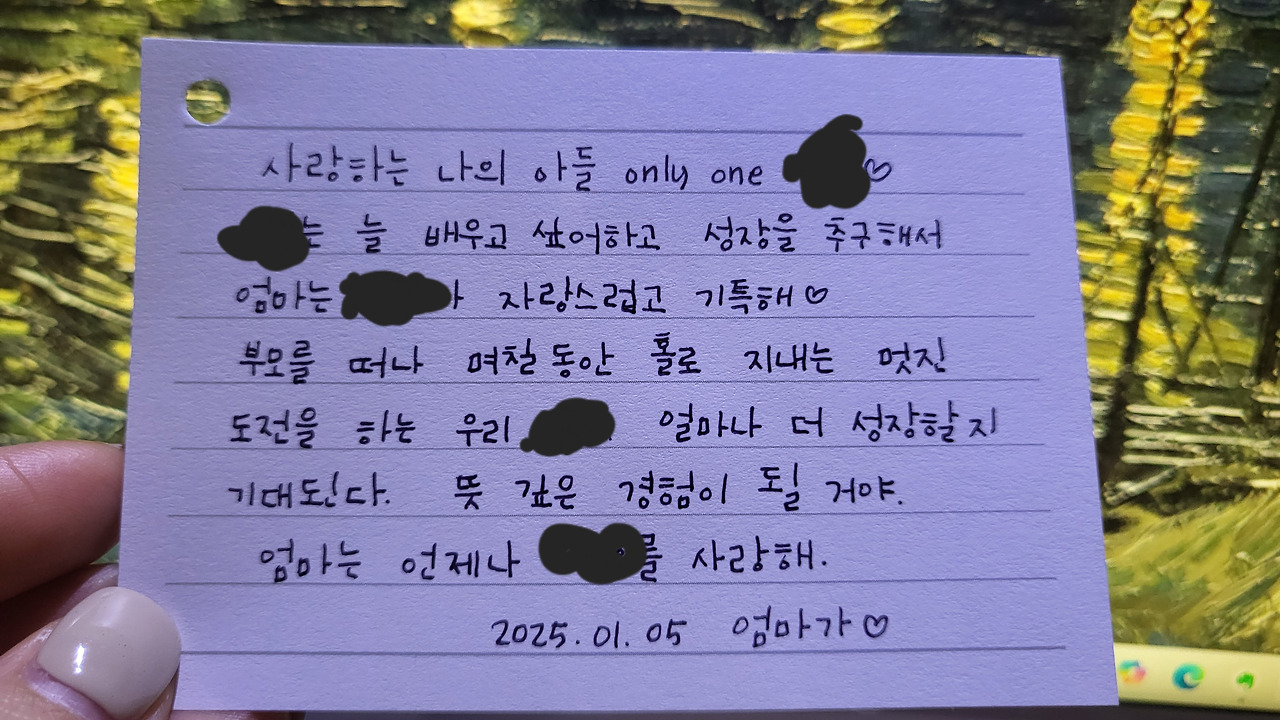 사랑하는 나의 아들 only one ♡
는 늘 배우고 싶어하고 성장을 추구해서
엄마는 자랑스럽고 기특해♡
부모를 떠나 며칠 동안 홀로 지내는 멋진
도전을 하는 우리 얼마나 더 성장할지
기대된다. 뜻 깊은 경험이 될 거야.
엄마는 언제나 를 사랑해.
2025.01.05 엄마가♡